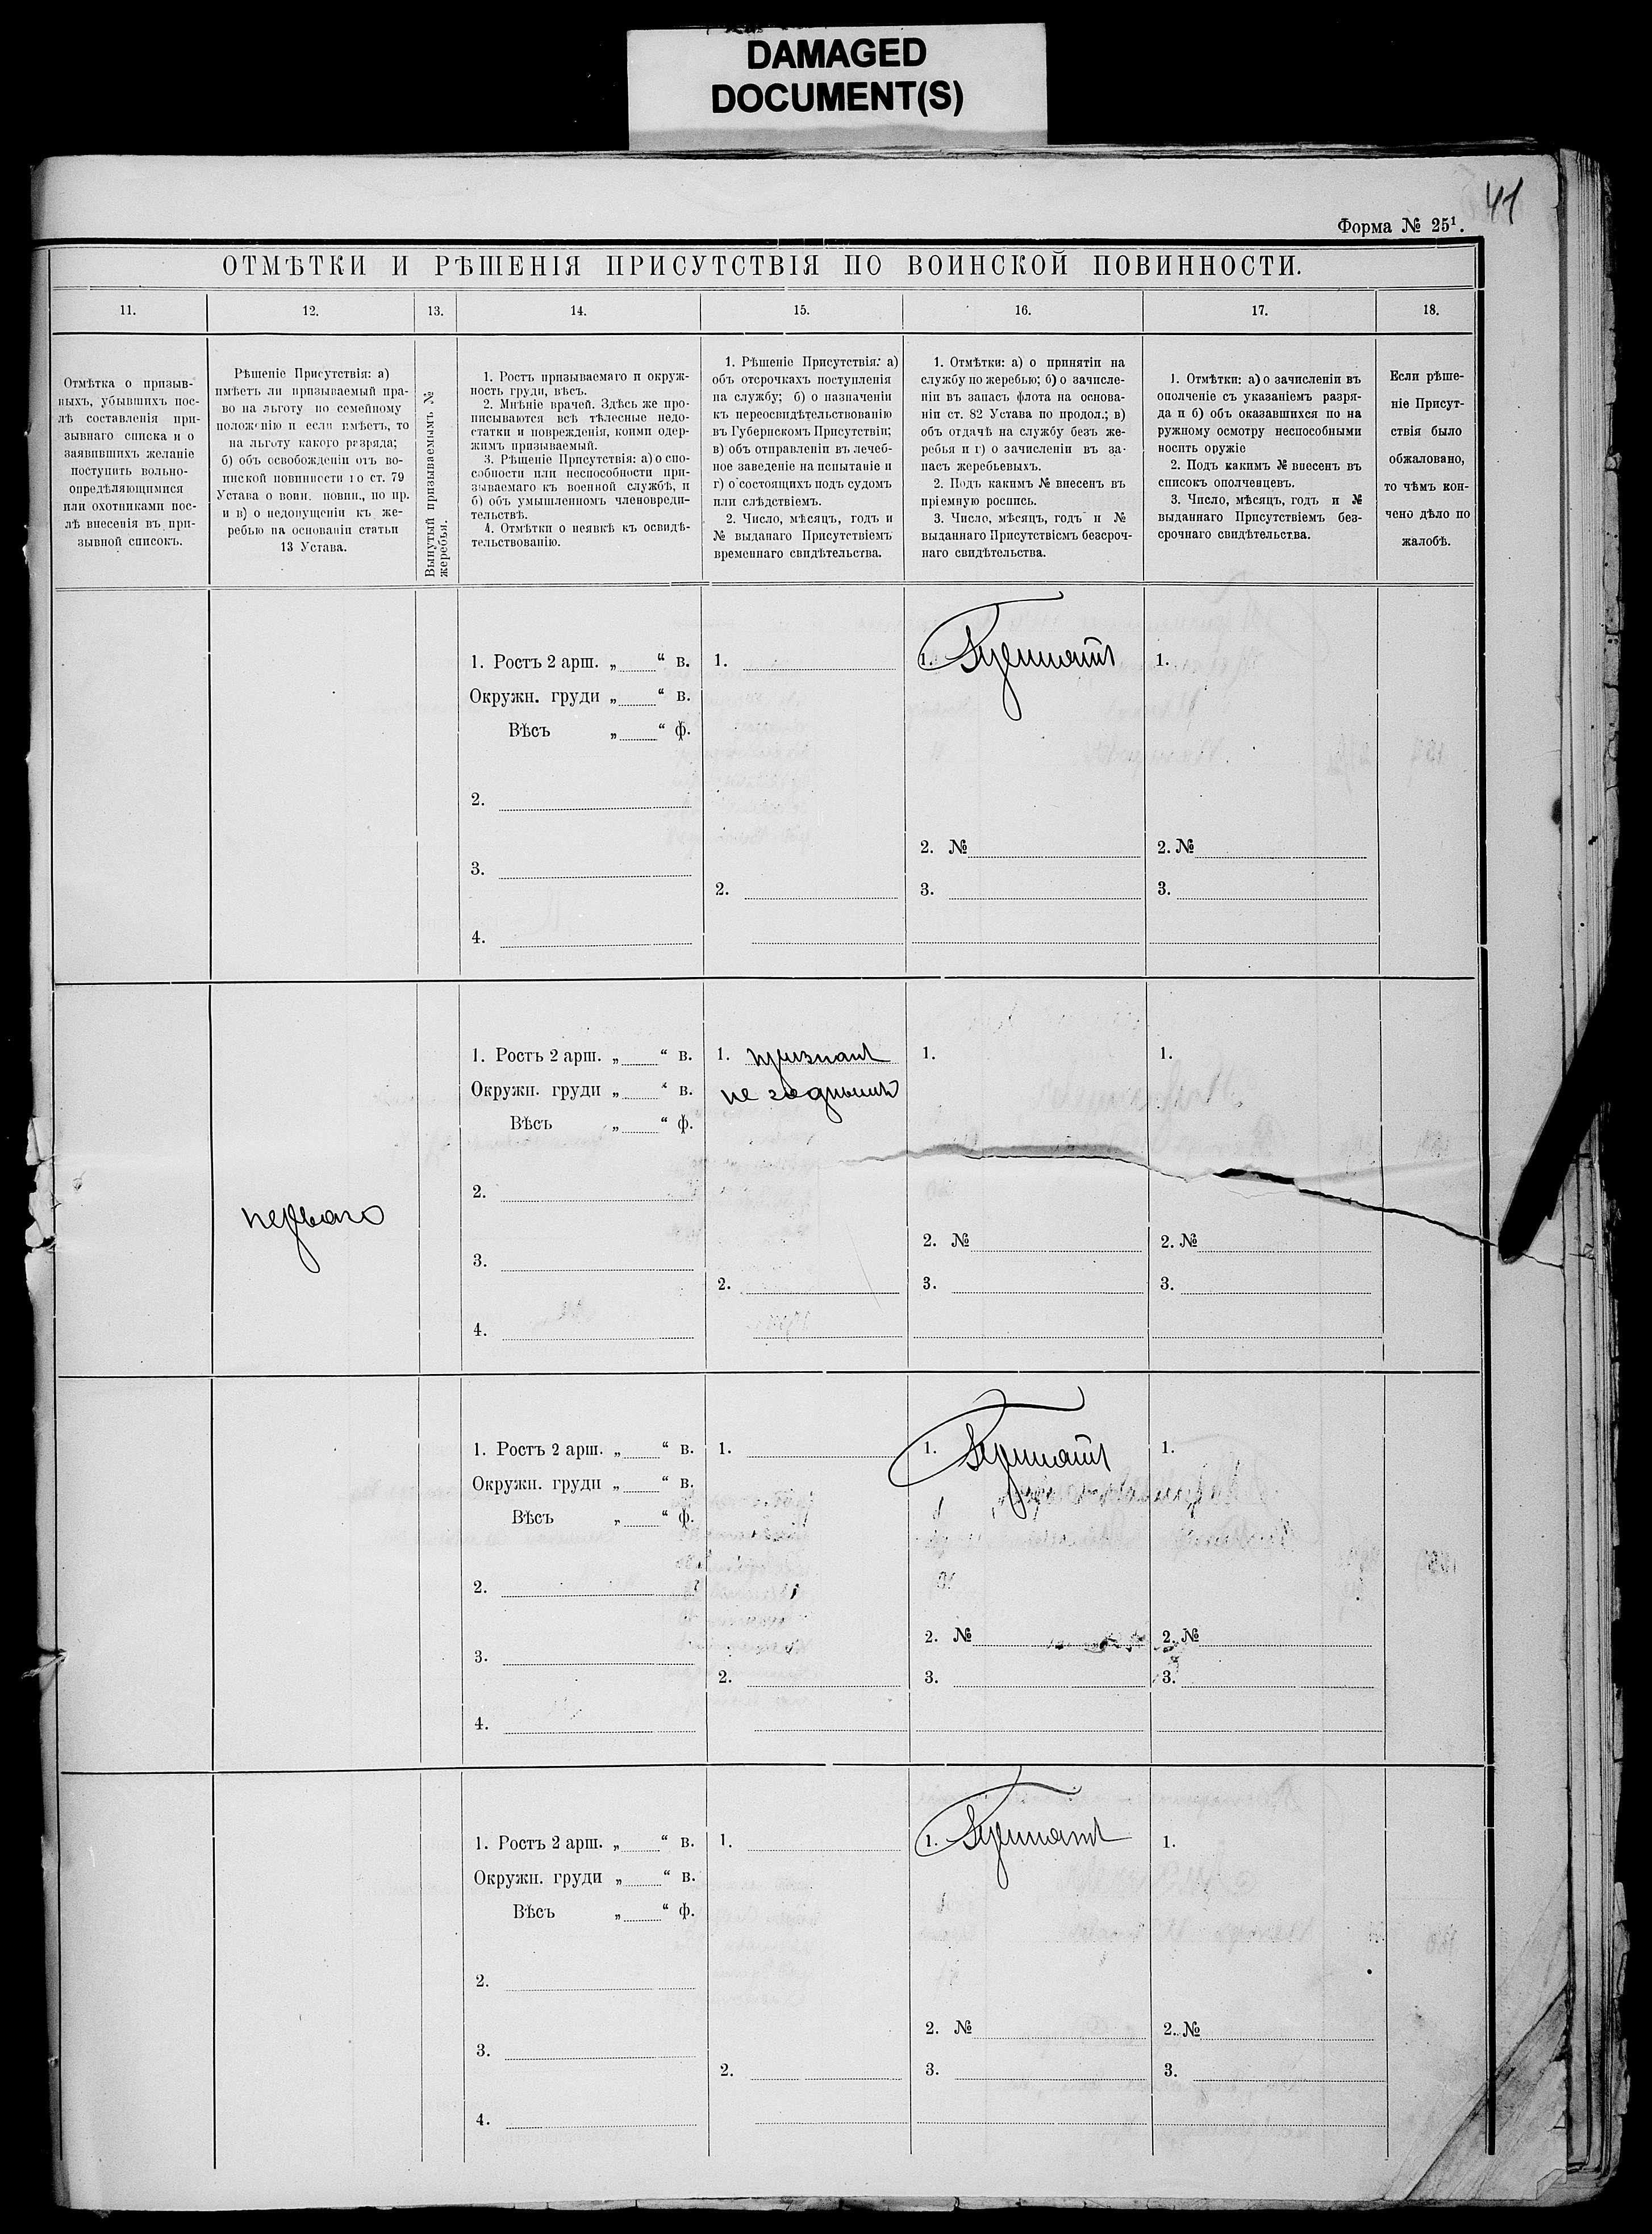 DAMAGED
DOCUMENT(S)
41
Форма № 25¹.
ОТМѢТКИ И РѢШЕНІЯ ПРИСУТСТВІЯ ПО ВОИНСКОЙ ПОВИННОСТИ.
11.
12.
13.
14.
15.
16.
17.
18.
Отмѣтка о призыв-
ныхъ, убывшихъ пос-
лѣ составленія при-
зывнаго списка и о
заявившихъ желаніе
поступить вольно-
опредѣляющимися
или охотниками пос-
лѣ внесенія въ при-
зывной списокъ.
Рѣшеніе Присутствія: а)
имѣетъ ли призываемый пра-
во на льготу по семейному
положенію и если имѣетъ, то
на льготу какого разряда;
б) объ освобожденіи отъ во-
инской повинности по ст. 79
Устава о воин. повин., по пр.
и в) о недопущеніи къ же-
ребью на основаніи статьи
13 Устава.
Вынутый призываемымъ №
жеребья.
1. Ростъ призываемаго и окруж-
ность груди, вѣсъ.
2. Мнѣніе врачей. Здѣсь же про-
писываются всѣ тѣлесные недо-
статки и поврежденія, коими одер-
жимъ призываемый.
3. Рѣшеніе Присутствія: а) о спо-
собности или неспособности при-
зываемаго къ военной службѣ, и
б) объ умышленномъ членовреди-
тельствѣ.
4. Отмѣтки о неявкѣ къ освидѣ-
тельствованію.
1. Рѣшеніе Присутствія: а)
объ отсрочкахъ поступленія
на службу; б) о назначеніи
къ переосвидѣтельствованію
въ Губернскомъ Присутствіи;
в) объ отправленіи въ лечеб-
ное заведеніе на испытаніе и
г) о состоящихъ подъ судомъ
или слѣдствіемъ.
2. Число, мѣсяцъ, годъ и
№ выданаго Присутствіемъ
временнаго свидѣтельства.
1. Отмѣтки: а) о принятіи на
службу по жеребью; б) о зачисле-
ніи въ запасъ флота на основа-
ніи ст. 82 Устава по продол.; в)
объ отдачѣ на службу безъ же-
ребья и г) о зачисленіи въ за-
пасъ жеребьевыхъ.
2. Подъ какимъ № внесенъ въ
пріемную роспись.
3. Число, мѣсяцъ, годъ и №
выданнаго Присутствіемъ безсроч-
наго свидѣтельства.
1. Отмѣтки: а) о зачисленіи въ
ополченіе съ указаніемъ разря-
да и б) объ оказавшихся по на
ружному осмотру неспособными
носить оружіе
2. Подъ какимъ № внесенъ въ
списокъ ополченцевъ.
3. Число, мѣсяцъ, годъ и №
выданнаго Присутствіемъ без-
срочнаго свидѣтельства.
Если рѣше-
ніе Присут-
ствія было
обжаловано,
то чѣмъ кон-
чено дѣло по
жалобѣ.
1. Ростъ 2 арш. „ “ в.
Окружн. груди „ “ в.
Вѣсъ „ “ ф.
2.
3.
4.
1.
2.
1.
2. №
3.
1.
2. №
3.
перваго
1. Ростъ 2 арш. „ “ в.
Окружн. груди „ “ в.
Вѣсъ „ “ ф.
2.
3.
4.
1. признанъ
не
2.
1.
2. №
3.
1.
2. №
3.
1. Ростъ 2 арш. „ “ в.
Окружн. груди „ “ в.
Вѣсъ „ “ ф.
2.
3.
4.
1.
2.
1.
2. №
3.
1.
2. №
3.
1. Ростъ 2 арш. „ “ в.
Окружн. груди „ “ в.
Вѣсъ „ “ ф.
2.
3.
4.
1.
2.
1.
2. №
3.
1.
2. №
3.